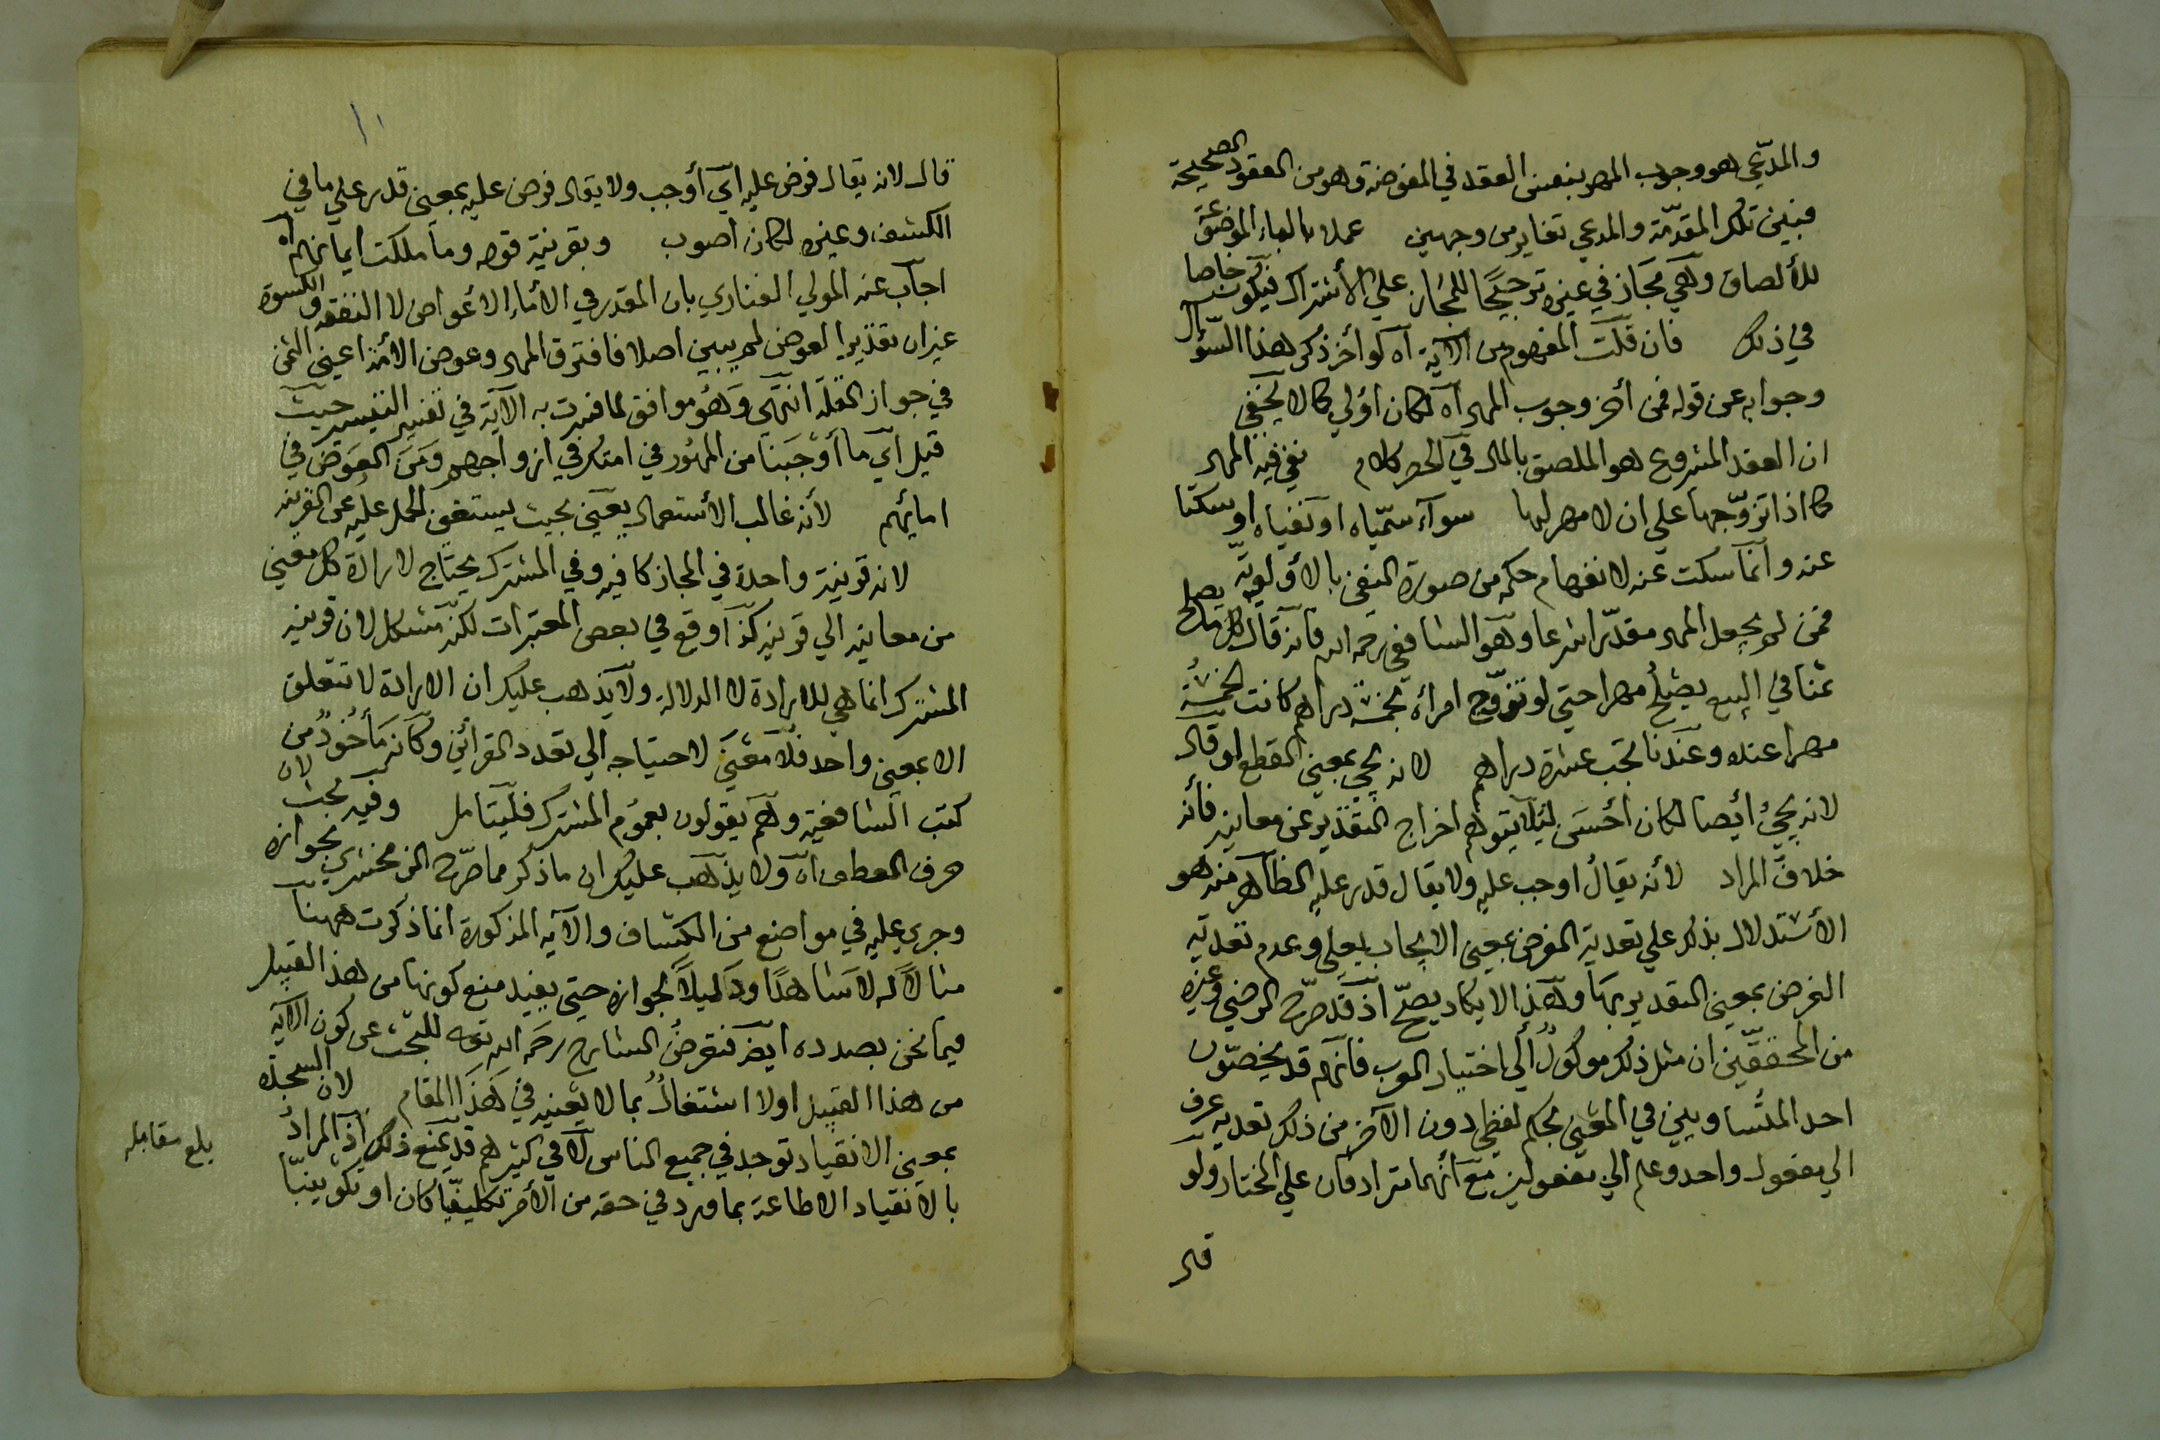 والمدّعي هو وجوب المهر بنفس العقد في المفوضة وهو من العقود الصحيحة
فبين تلك المقدّمة والمدعي تغاير من وجهين عملا بالباء الموضوعة
للألصاق وهي مجاز في غيره ترجيحًا للمجاز علي الأشتراك فيكون خاصا
في ذلك فان قلت المفهوم من الآية آه لو أخر ذكر هذا السّؤال
وجوابه عن قوله فمن أخر وجوب المهر آه لكان أولي كما لا يخفي
ان العقد المشروع هو الملصق بالمال في الحصر كلام نفي فيه المهر
كما اذا تزوّجها علي ان لا مهر لها سوآء سمّياه او نفياه او سكتا
عنه وانما سكت عنه لانفهام حكمه من صورة النفي بالأولويّة
فمن لم يجعل المهر مقدّرا شرعا وهو الشافعي رحمه الله فانه قال كل ما يصلح
ثمنا في البيع يصلح مهرا حتي لو تزوّج امرأة بخمسة دراهم كانت الخمسة
مهرا عنده وعندنا تجب عشرة دراهم لانه يجي بمعني القطع او قال
لانه يجيُ أيضا لكان أحسن ليلا يتوهم اخراج التقدير عن معانيه فأنه
خلاف المراد لأنه يقال اوجب عليه ولا يقال قدر عليه الظاهر منه هو
الأستدلال بذلك علي تعدية الفرض بمعني الايجاب بعلي وعدم تعدية
الفرض بمعني التقدير بها وهذا لا يكاد يصحّ اذ قد صرّح الرضي وغيره
من المحققّين ان مثل ذلك موكولٌ ألي اختيار العرب فأنهم قد يخصّون
احد المتُساويين في المعني بحكم لفظي دون الآخر من ذلك تعدية عرف
الي مفعول واحد وعلم الي مفعولين مع أنهما مترادفان علي المختار ولو
قال
قال لانه يقال فرض عليه أي أوجب ولا يقال فرض عليه بمعني قدر علي ما في
الكشف وغيره لكان اصوب وبقرنية قوله وما ملكت ايمانهم آه
اجاب عنه المولي الفناري بان المقدر في الأماء الاعواض لا النفقه والكسوة
غير ان تقدير العوض لم يبين اصلا فافترق المهر وعوض الأمة اعني الثمن
في جواز القلة انتهي وهو موافق لما فسرت به الآية في تفسير التيسير حيث
قيل أي ما أوْجَبنا من المهُور في امتك في ازواجهم ومن العوض في
امائهم لأنه غالب الأستعمال يعني بحيث يستغني الحمل عليه عن القرينه
لانه قرينة واحدة في المجاز كافيه وفي المشترك يحتاج لارادة كل معني
من معانيه الي قرينه كذا وقع في بعض المعتبرات لكنه مشكل لان قرينه
المشترك انما هي للارادة لا الدلالة ولا يذهب عليك ان الارادة لا تتعلق
الا بمعني واحد فلا معني لاحتياجه الي تعدد القرائن وكانه مأخوذٌ من
كتب الشافعية وهم يقولون بعموم المشترك فليتامل وفيه بحث لان
حرف العطف آه ولا يذهب عليك ان ما ذكر مما صرّح الزمخشري بجوازه
وجري عليه في مواضع من الكشاف والآية المذكورة انما ذكرت ههنا
مثالا له لا شاهدًا ودليلاً لجوازه حتي يفيد منع كونها من هذا القبيل
فيما نحن بصدده ايض فتعرضُ الشارح رحمه الله تعه للبحث عن كون الآية
من هذا القبيل اولا اشتغالٌ بما لا يعنيه في هذا المقام لان السجدة
بمعني الانقياد توجد في جميع الناس لا في كثيرهم قد يمنع ذلك اذ المرادُ
بالانقياد الاطاعة بما ورد في حقه من الأمر تكليفيّا كان او تكوينيّا
بلغ مقابله